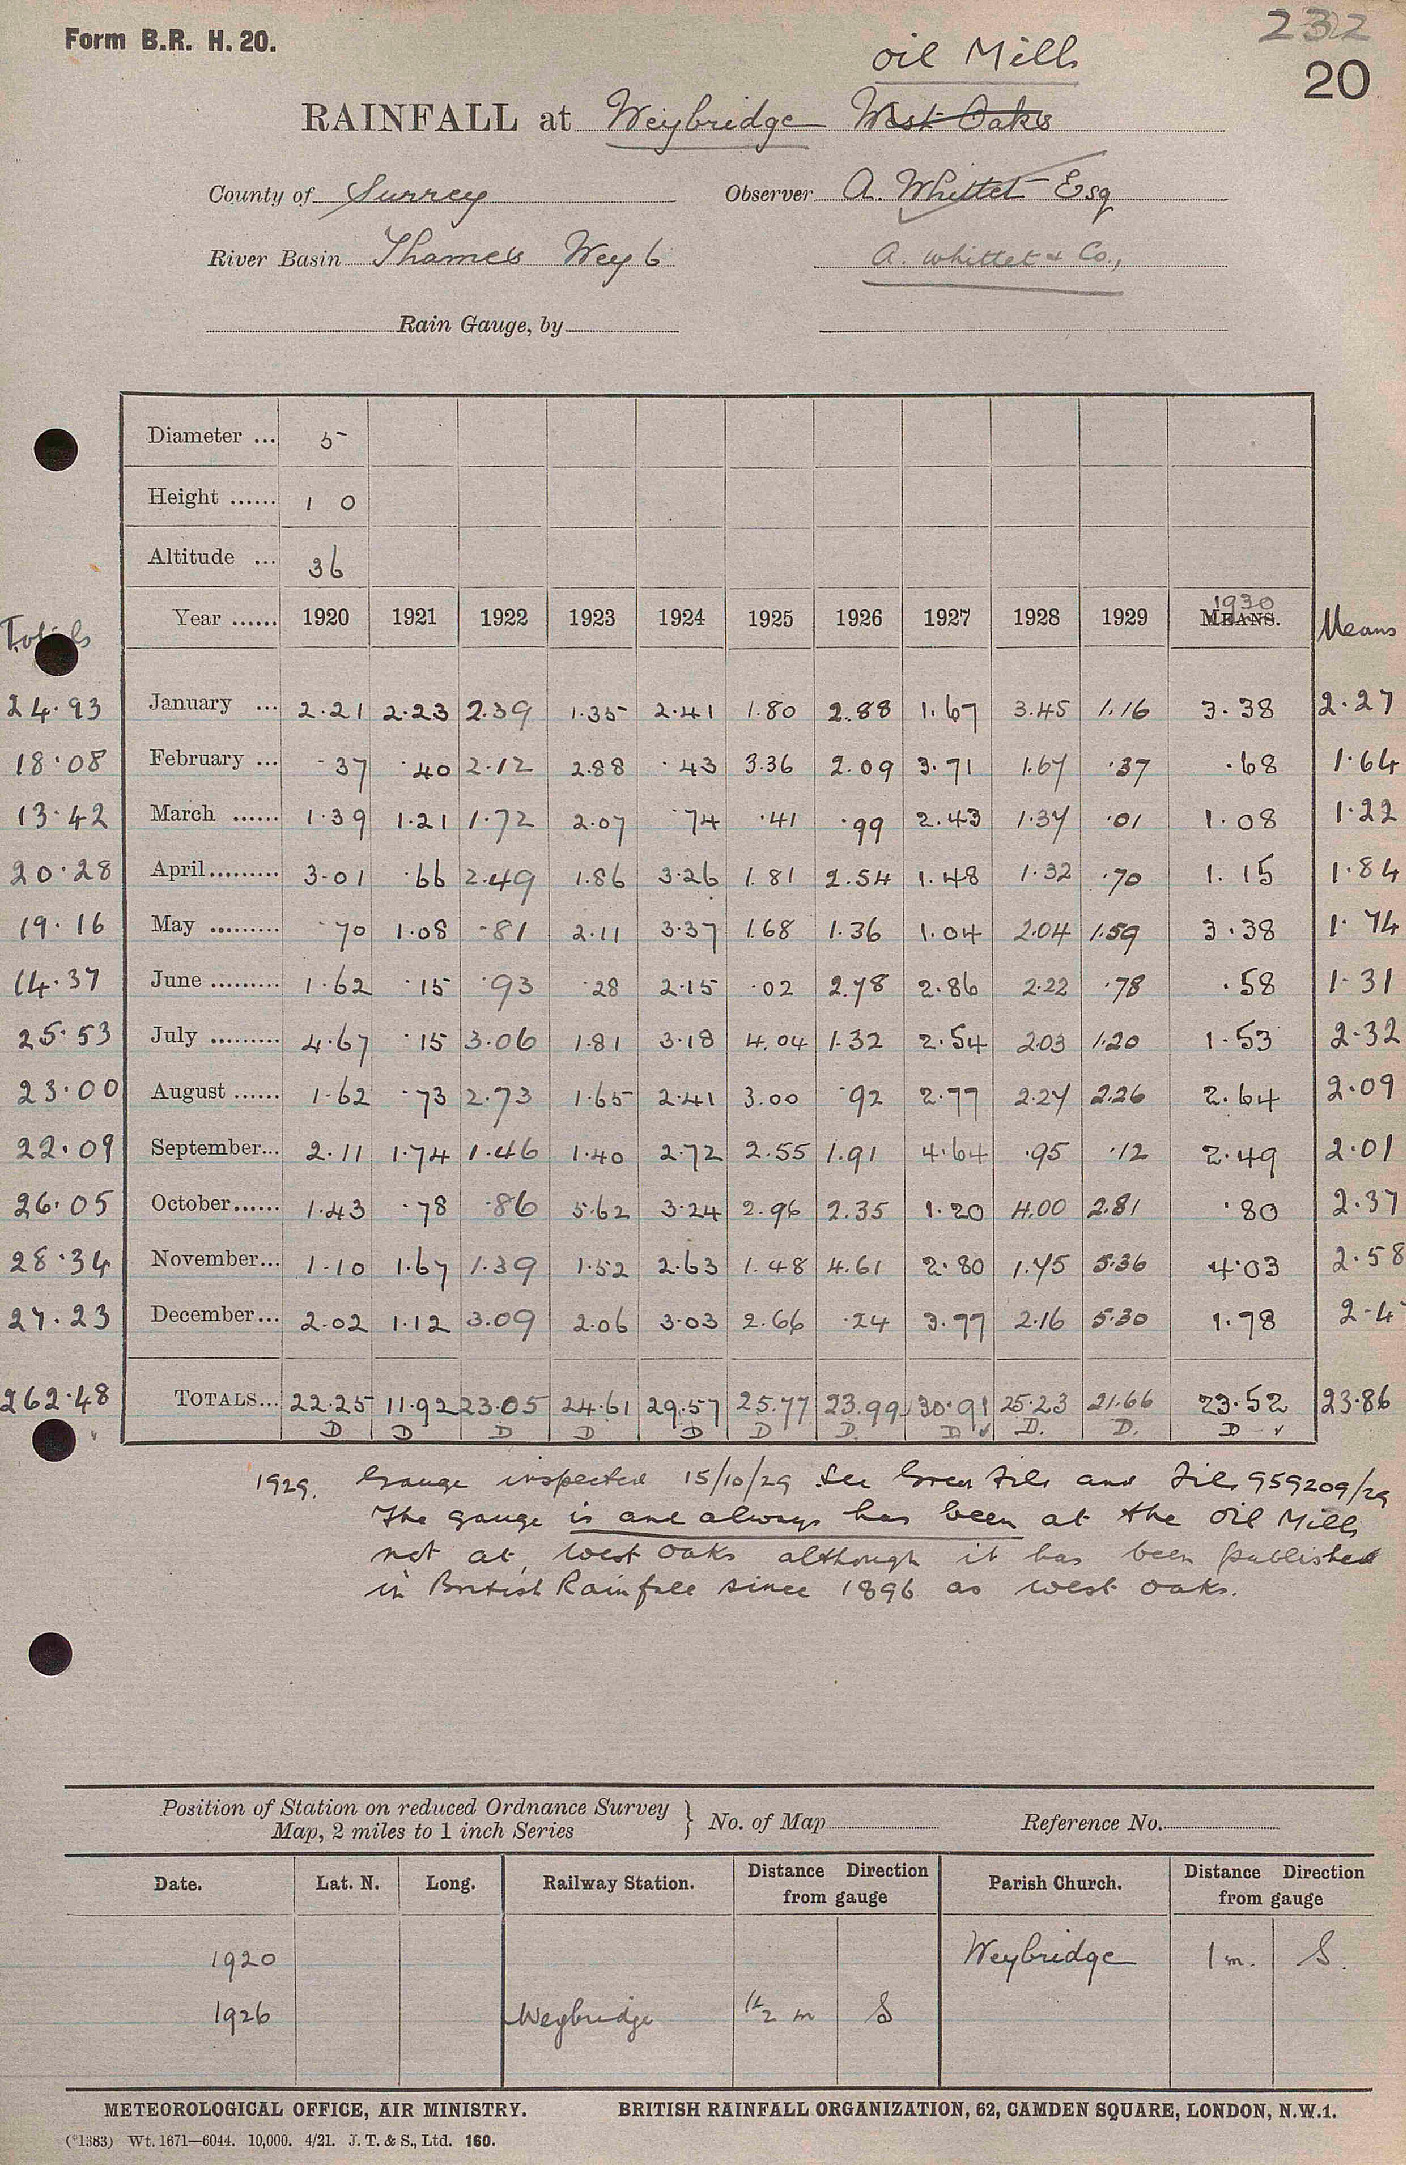 Form B.R. H. 20.
232
20
Oil Mills
RAINFALL at Weybridge West Oaks
County of Surrey Observer A. Whittet Esq
River Basin Thames Wey 6 A. Whittet & Co.,
Rain Gauge, by
Diameter ... 5
Height ...... 1 0
Altitude ... 36
Totals Year ...... 1920 1921 1922 1923 1924 1925 1926 1927 1928 1929 1930 MEANS. Means
24.93 January ... 2.21 2.23 2.39 1.35 2.41 1.80 2.88 1.67 3.45 1.16 3.38 2.27
18.08 February ... .37 .40 2.12 2.88 .43 3.36 2.09 3.71 1.67 .37 .68 1.64
13.42 March ...... 1.39 1.21 1.72 2.07 .74 .41 .99 2.43 1.37 .01 1.08 1.22
20.28 April......... 3.01 .66 2.49 1.86 3.26 1.81 2.54 1.48 1.32 .70 1.15 1.84
19.16 May ......... .70 1.08 .81 2.11 3.37 1.68 1.36 1.04 2.04 1.59 3.38 1.74
14.37 June ......... 1.62 .15 .93 .28 2.15 .02 2.78 2.86 2.22 .78 .58 1.31
25.53 July ......... 4.67 .15 3.06 1.81 3.18 4.04 1.32 2.54 2.03 1.20 1.53 2.32
23.00 August ...... 1.62 .73 2.73 1.65 2.41 3.00 .92 2.77 2.27 2.26 2.64 2.09
22.09 September... 2.11 1.74 1.46 1.40 2.72 2.55 1.91 4.64 .95 .12 2.49 2.01
26.05 October...... 1.43 .78 .86 5.62 3.24 2.96 2.35 1.20 4.00 2.81 .80 2.37
28.34 November... 1.10 1.67 1.39 1.52 2.63 1.48 4.61 2.80 1.75 5.36 4.03 2.58
27.23 December... 2.02 1.12 3.09 2.06 3.03 2.66 .24 3.77 2.16 5.30 1.78 2.4
262.48 TOTALS... 22.25 11.92 23.05 24.61 29.57 25.77 23.99 30.91 25.23 21.66 23.52 23.86
D D D D D D D. D ✓ D. D. D ✓
1929. Gauge inspected 15/10/29 See Green File and File 959209/29
The gauge is and always has been at the Oil Mills
not at West Oaks although it has been published
in British Rainfall since 1896 as West Oaks.
Position of Station on reduced Ordnance Survey
Map, 2 miles to 1 inch Series } No. of Map Reference No.
Date. Lat. N. Long. Railway Station. Distance Direction from gauge Parish Church. Distance Direction from gauge
1920 Weybridge 1 m. S.
1926 Weybridge 1 1/2 m S
METEOROLOGICAL OFFICE, AIR MINISTRY. BRITISH RAINFALL ORGANIZATION, 62, CAMDEN SQUARE, LONDON, N.W.1.
(*1383) Wt. 1671—6044. 10,000. 4/21. J. T. & S., Ltd. 160.